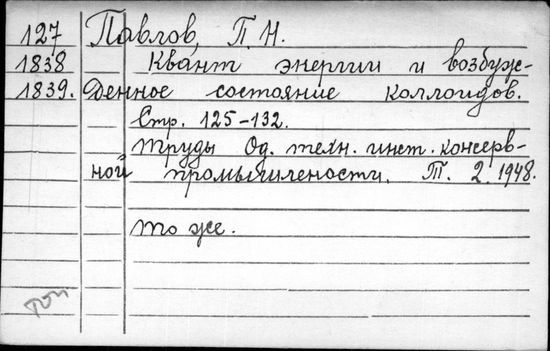 127 Павлов, П. Н.
1838 Квант энергии и возбуж-
1839. денное состояние коллоидов.
Стр. 125-132.
Труды Од. техн. инст. консерв-
ной промышлености. Т. 2. 1948.
То же.